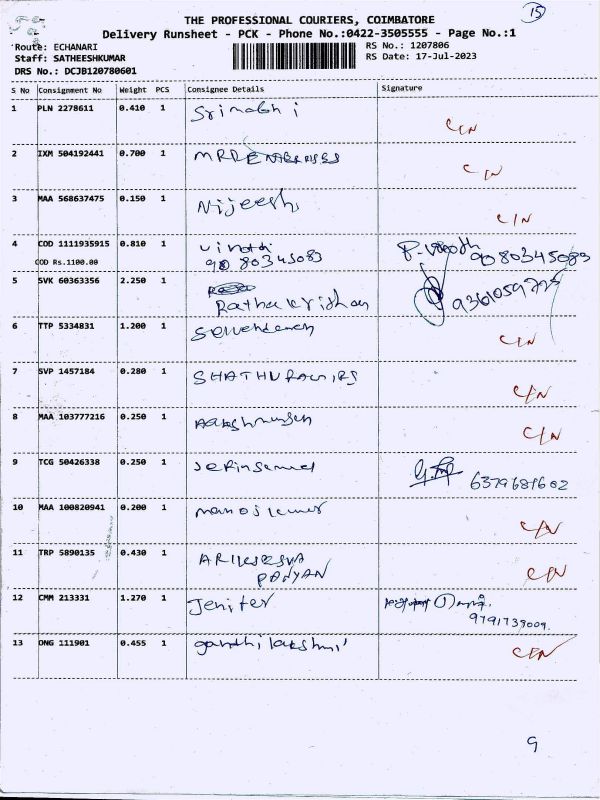 15
THE PROFESSIONAL COURIERS, COIMBATORE
Delivery Runsheet - PCK - Phone No.:0422-3505555 - Page No.:1
Route: ECHANARI
RS No.: 1207806
Staff: SATHEESHKUMAR
RS Date: 17-Jul-2023
DRS No.: DCJB120780601
S No Consignment No Weight PCS Consignee Details Signature
1 PLN 2278611 0.410 1 Srinabhi C/N
2 IXM 504192441 0.700 1 C/N
3 MAA 568637475 0.150 1 Nijeesh C/N
4 COD 1111935915 0.810 1 Vinoth
COD Rs.1100.00 9080345083 9080345083
5 SVK 60363356 2.250 1 Rathakrishan
6 TTP 5334831 1.200 1 C/N
7 SVP 1457184 0.280 1 C/N
8 MAA 103777216 0.250 1 C/N
9 TCG 50426338 0.250 1 Jefinsamuel 6379681602
10 MAA 100820941 0.200 1 manojkumar C/N
11 TRP 5890135 0.430 1 C/N
PANYAN
12 CMM 213331 1.270 1 Jenifer
9791739009
13 ONG 111901 0.455 1 gandhilakshmi C/N
9